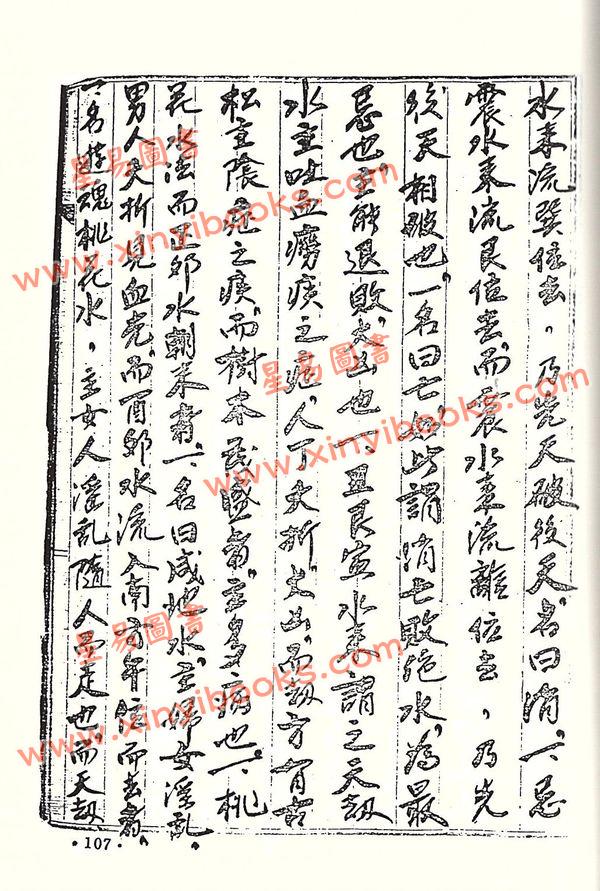 水来流巽位去，乃先天破後天者曰消。一、忌
震水来流艮位去，而震水来流離位去，乃先
後天相破也。一名曰亡，如此謂消亡敗絕水，為最
忌也，主能退敗，大凶也。一、丑艮寅水来謂之天劫
水，主吐血癆疾之症，人丁夭折，大凶，而劫方有古
松主陰症之疾，而樹木茂盛者，主多病也。一、桃
花水法，而正卯水朝来者，一名曰咸池水，主婦女淫乱，
男人夭折見血光，而酉卯水流入南方午位而去者，
一名遊魂桃花水，主女人淫乱隨人而走也，而天劫
·107·
星易圖書
www.xinyibooks.com
星易圖書
www.xinyibooks.com
星易圖書
www.xinyibooks.com